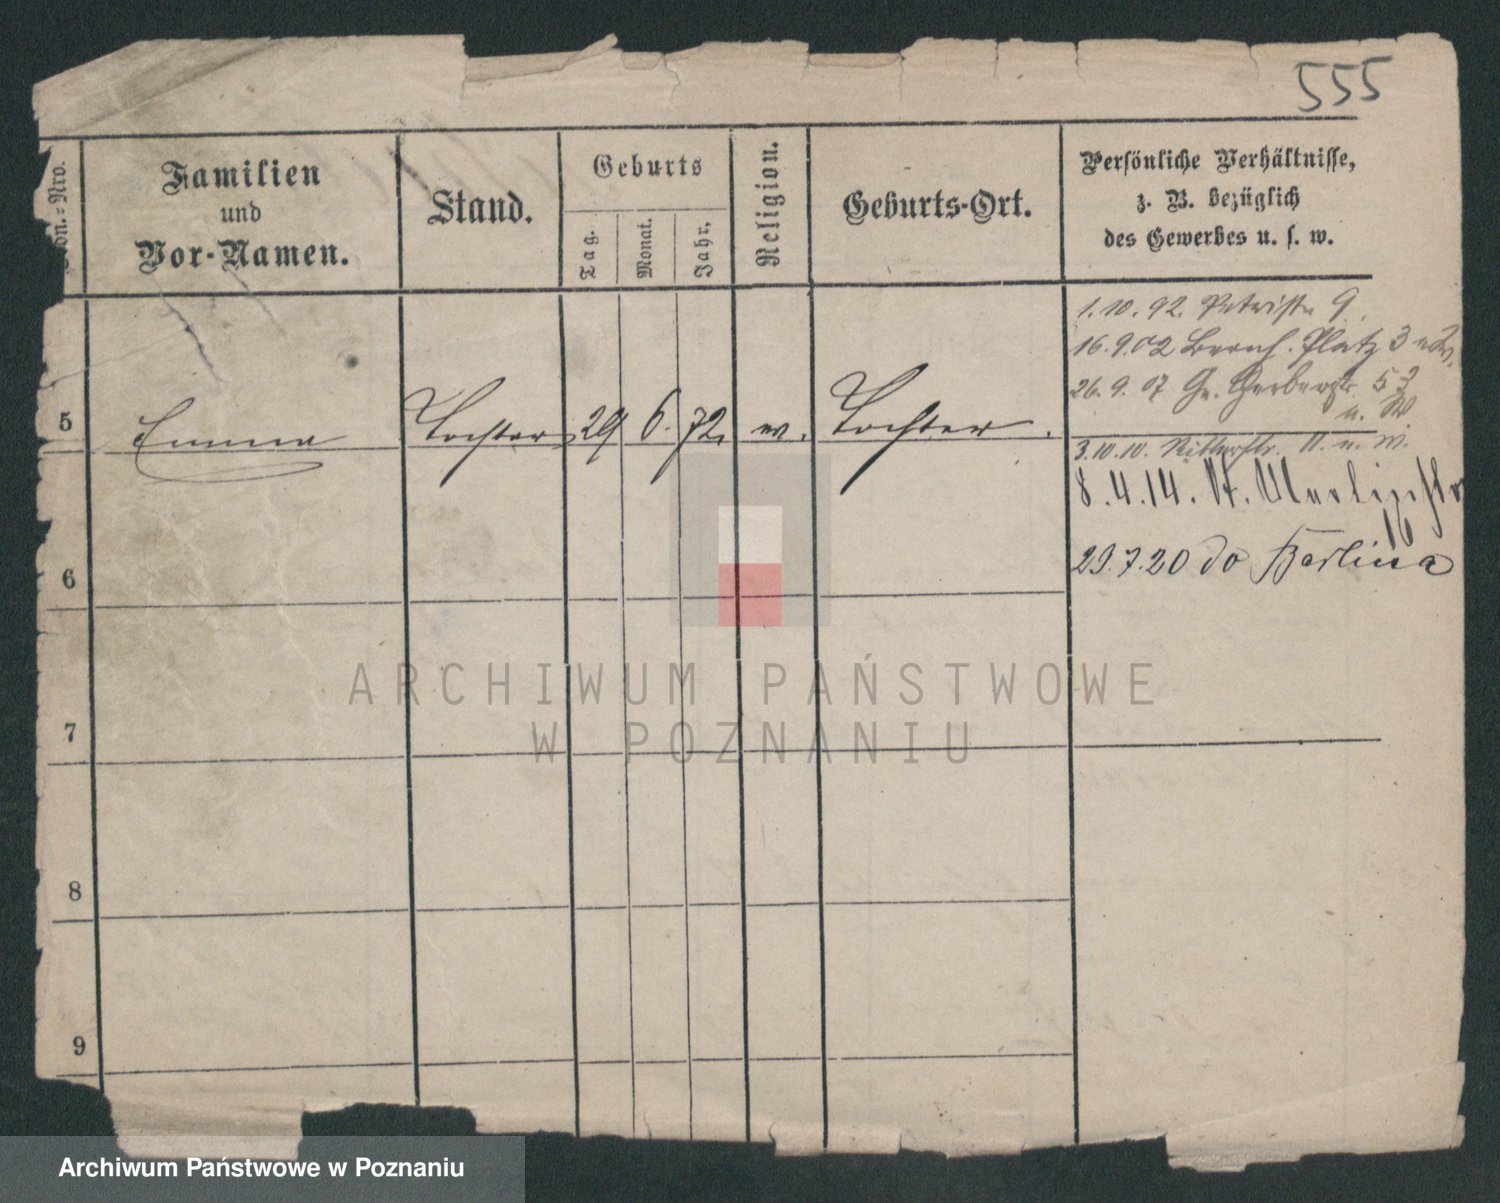 555
Familien
und
Vor-Namen.
Stand.
Geburts
Tag.
Monat.
Jahr.
Religion.
Geburts-Ort.
Persönliche Verhältnisse,
z. B. bezüglich
des Gewerbes u. s. w.
1. 10. 92. Petristr. 9.
16. 9. 02 Bernh. Platz 3
26. 9. 07 Gr. Gerberstr. 53
u. W
5 Emma Tochter 29 6. 72. w. Tochter.
3. 10. 10. Ritterstr. 11. u. W.
8. 4. 14.
16
29. 7. 20 do Berlina
6
7
8
9
ARCHIWUM PAŃSTWOWE
W POZNANIU
Archiwum Państwowe w Poznaniu